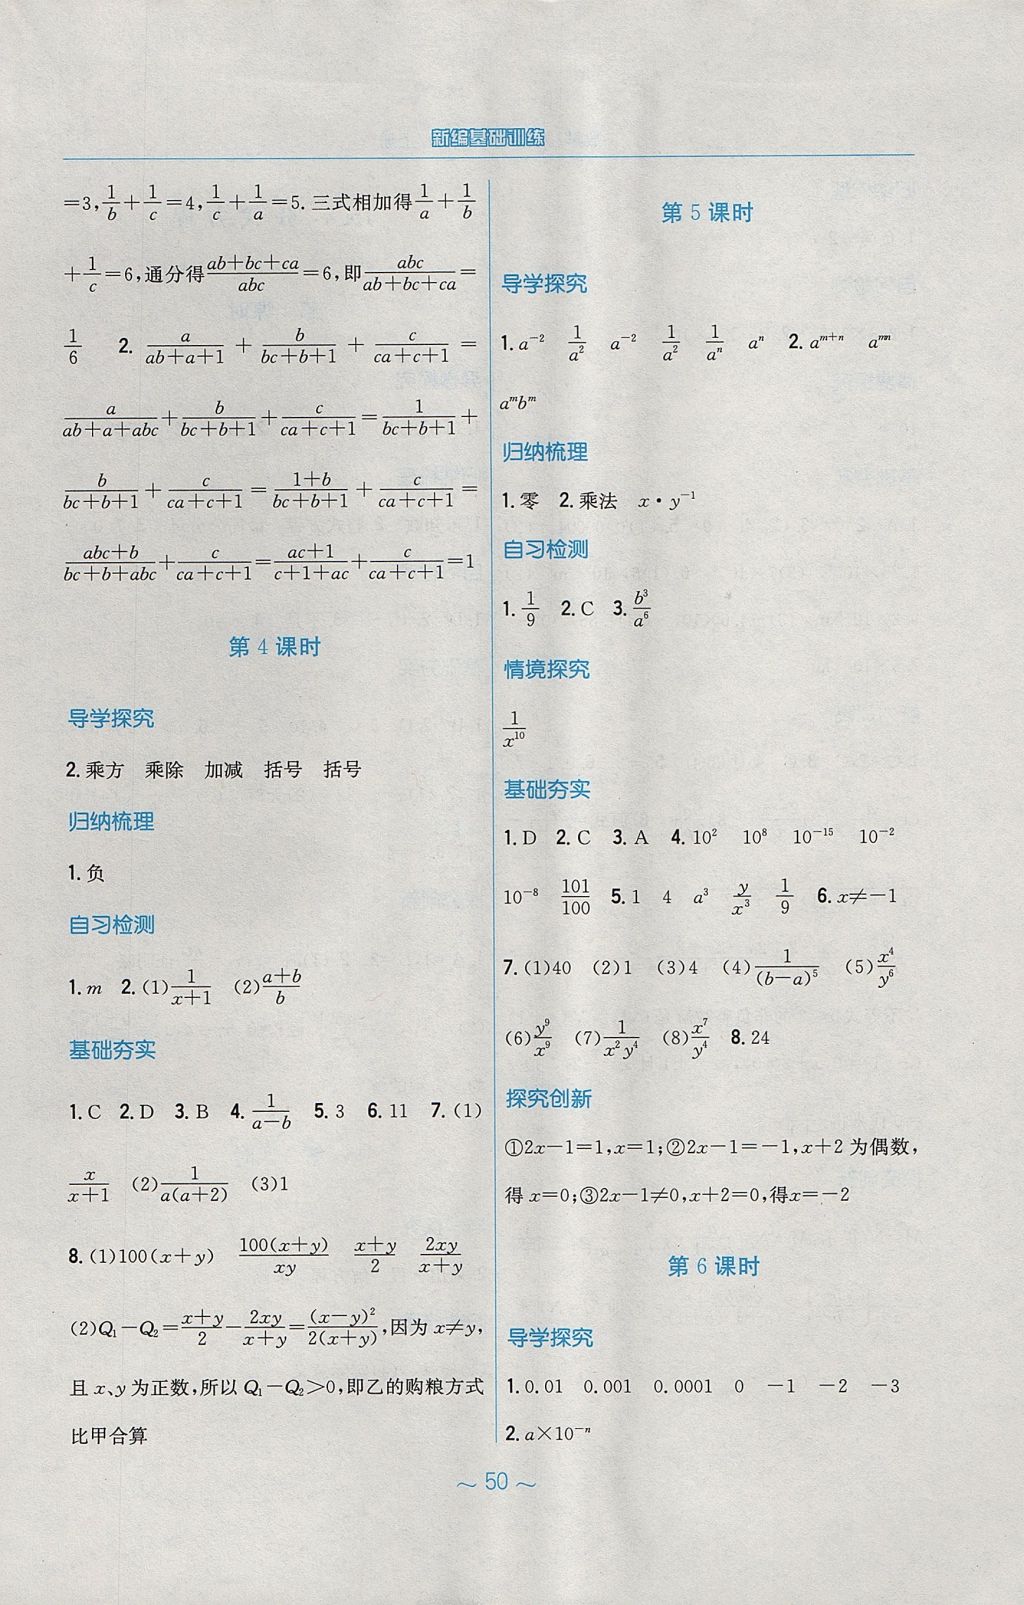 新编基础训练
=3, 1/b+1/c=4, 1/c+1/a=5. 三式相加得 1/a+1/b
+1/c=6, 通分得 (ab+bc+ca)/abc=6, 即 abc/(ab+bc+ca)=
1/6 2. a/(ab+a+1)+b/(bc+b+1)+c/(ca+c+1)=
a/(ab+a+abc)+b/(bc+b+1)+c/(ca+c+1)=1/(bc+b+1)+
b/(bc+b+1)+c/(ca+c+1)=(1+b)/(bc+b+1)+c/(ca+c+1)=
(abc+b)/(bc+b+abc)+c/(ca+c+1)=(ac+1)/(c+1+ac)+c/(ca+c+1)=1
第 4 课时
导学探究
2. 乘方 乘除 加减 括号 括号
归纳梳理
1. 负
自习检测
1. m 2. (1) 1/(x+1) (2) (a+b)/b
基础夯实
1. C 2. D 3. B 4. 1/(a−b) 5. 3 6. 11 7. (1)
x/(x+1) (2) 1/(a(a+2)) (3)1
8. (1)100(x+y) 100(x+y)/xy (x+y)/2 2xy/(x+y)
(2)Q₁−Q₂=(x+y)/2−2xy/(x+y)=(x−y)²/(2(x+y)), 因为 x≠y,
且 x、y 为正数, 所以 Q₁−Q₂>0, 即乙的购粮方式
比甲合算
第 5 课时
导学探究
1. a⁻² 1/a² a⁻² 1/a² 1/aⁿ aⁿ 2. aᵐ⁺ⁿ aᵐⁿ
aᵐbᵐ
归纳梳理
1. 零 2. 乘法 x·y⁻¹
自习检测
1. 1/9 2. C 3. b³/a⁶
情境探究
1/x¹⁰
基础夯实
1. D 2. C 3. A 4. 10² 10⁸ 10⁻¹⁵ 10⁻²
10⁻⁸ 101/100 5. 1 4 a³ y/x³ 1/9 6. x≠−1
7. (1)40 (2)1 (3)4 (4) 1/(b−a)⁵ (5) x⁴/y⁶
(6) y⁹/x⁹ (7) 1/(x²y⁴) (8) x⁷/y⁴ 8. 24
探究创新
①2x−1=1, x=1; ②2x−1=−1, x+2 为偶数,
得 x=0; ③2x−1≠0, x+2=0, 得x=−2
第 6 课时
导学探究
1. 0.01 0.001 0.0001 0 −1 −2 −3
2. a×10⁻ⁿ
~ 50 ~